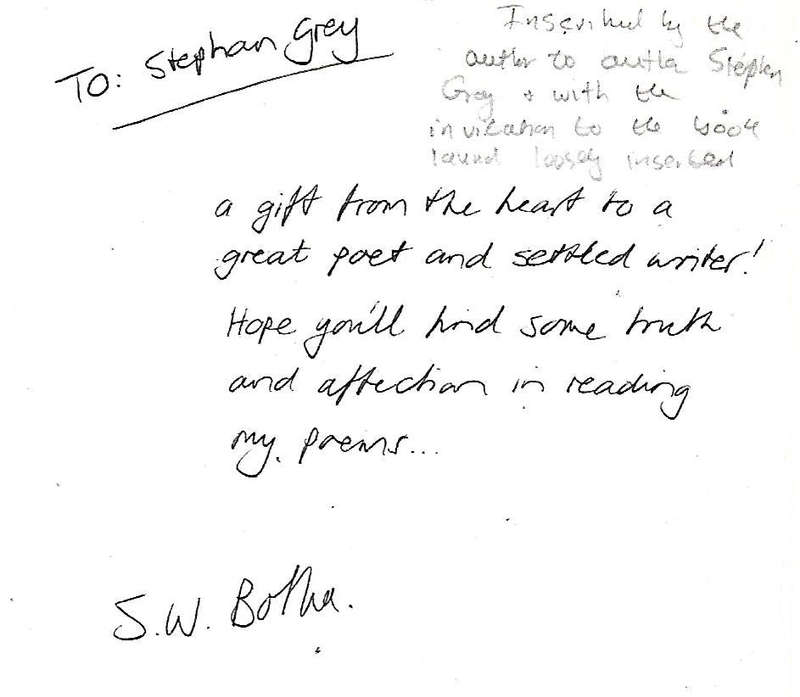 To: Stephan Grey
Inscribed by the
author to author Stephen
Grey & with the
invitation to the book
launch loosely inserted
a gift from the heart to a
great poet and settled writer!
Hope you'll find some truth
and affection in reading
my poems...
S.W. Botha.